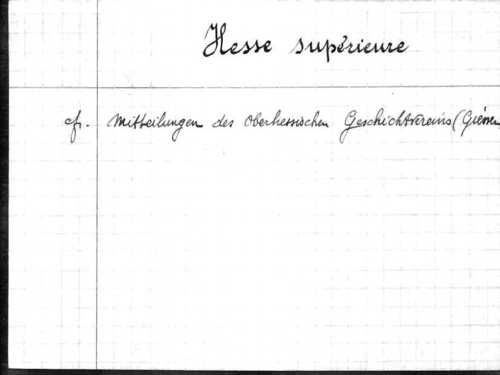 Hesse supérieure
cf. Mitteilungen des oberhessischen Geschichtvereins (Giessen